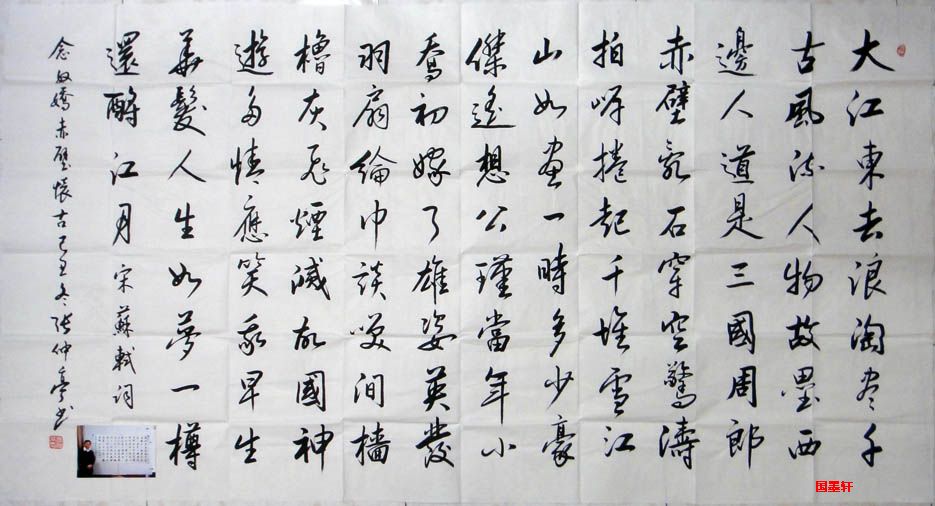 大江東去浪淘尽千
古風流人物故壘西
邊人道是三國周郎
赤壁亂石穿空驚濤
拍岸捲起千堆雪江
山如畫一時多少豪
傑遙想公瑾當年小
喬初嫁了雄姿英發
羽扇綸巾談笑間檣
櫓灰飛煙滅故國神
遊多情應笑我早生
華髮人生如夢一樽
還酹江月 宋蘇軾詞
念奴嬌赤壁懷古己丑冬張仲亭書
国墨轩